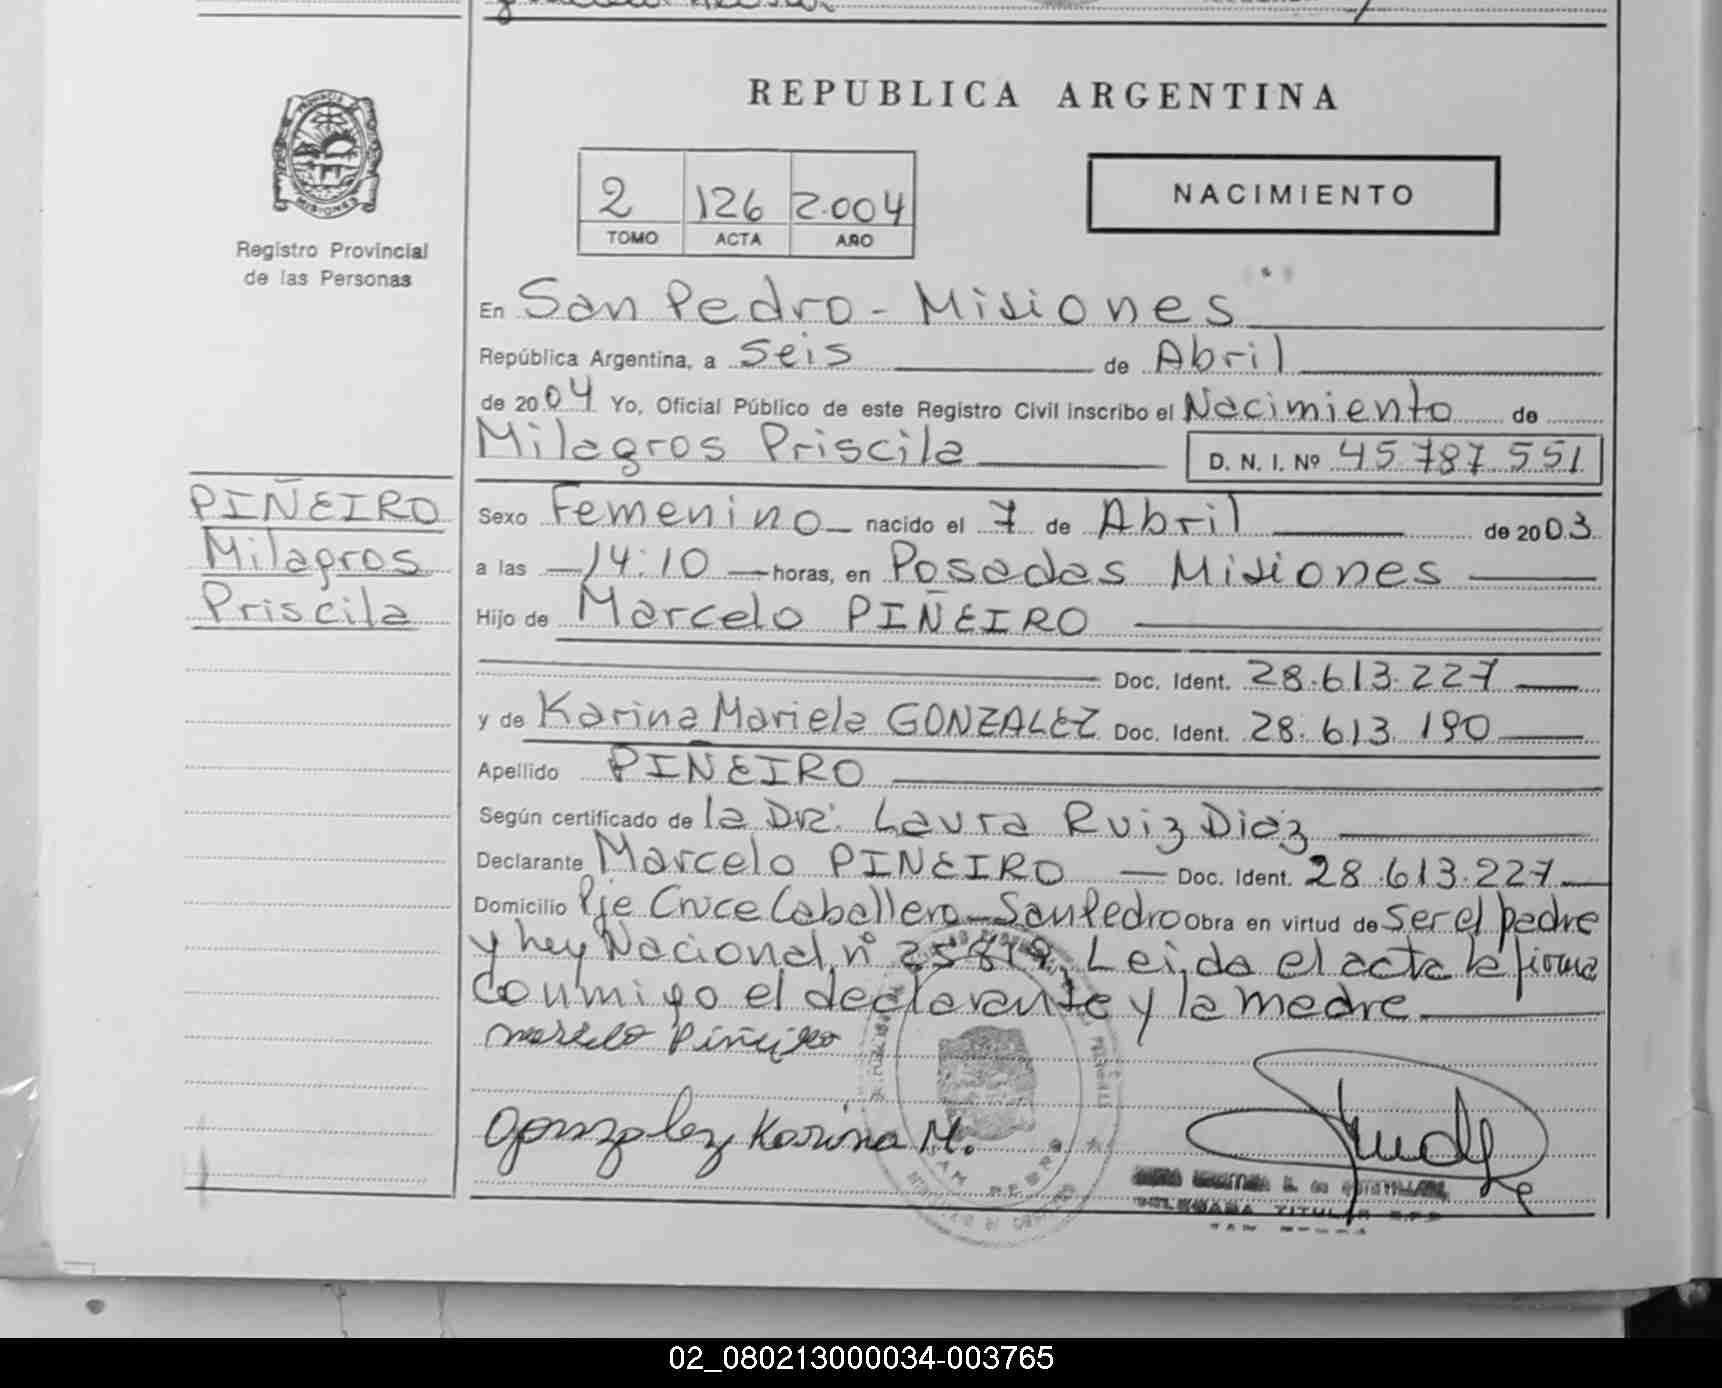 REPUBLICA ARGENTINA
PROVINCIA DE MISIONES
Registro Provincial
de las Personas
2 126 2.004
TOMO ACTA AÑO
NACIMIENTO
En San Pedro - Misiones
República Argentina, a Seis de Abril
de 2004 Yo, Oficial Público de este Registro Civil inscribo el Nacimiento de
Milagros Priscila D. N. I. Nº 45.787.551
PIÑEIRO
Milagros
Priscila
Sexo Femenino nacido el 7 de Abril de 2003
a las 14:10 horas, en Posadas Misiones
Hijo de Marcelo PIÑEIRO
Doc. Ident. 28.613.227
y de Karina Mariela GONZALEZ Doc. Ident. 28.613.190
Apellido PIÑEIRO
Según certificado de la Dra. Laura Ruiz Diaz
Declarante Marcelo PIÑEIRO Doc. Ident. 28.613.227
Domicilio Pje Cruce Caballero - San Pedro Obra en virtud de Ser el padre
y ley Nacional nº 25819. Leida el acta la firma
conmigo el declarante y la madre
Marcelo Piñeiro
Gonzalez Karina M.
DELEGADA TITULAR R.P.P.
SAN PEDRO
02_080213000034-003765